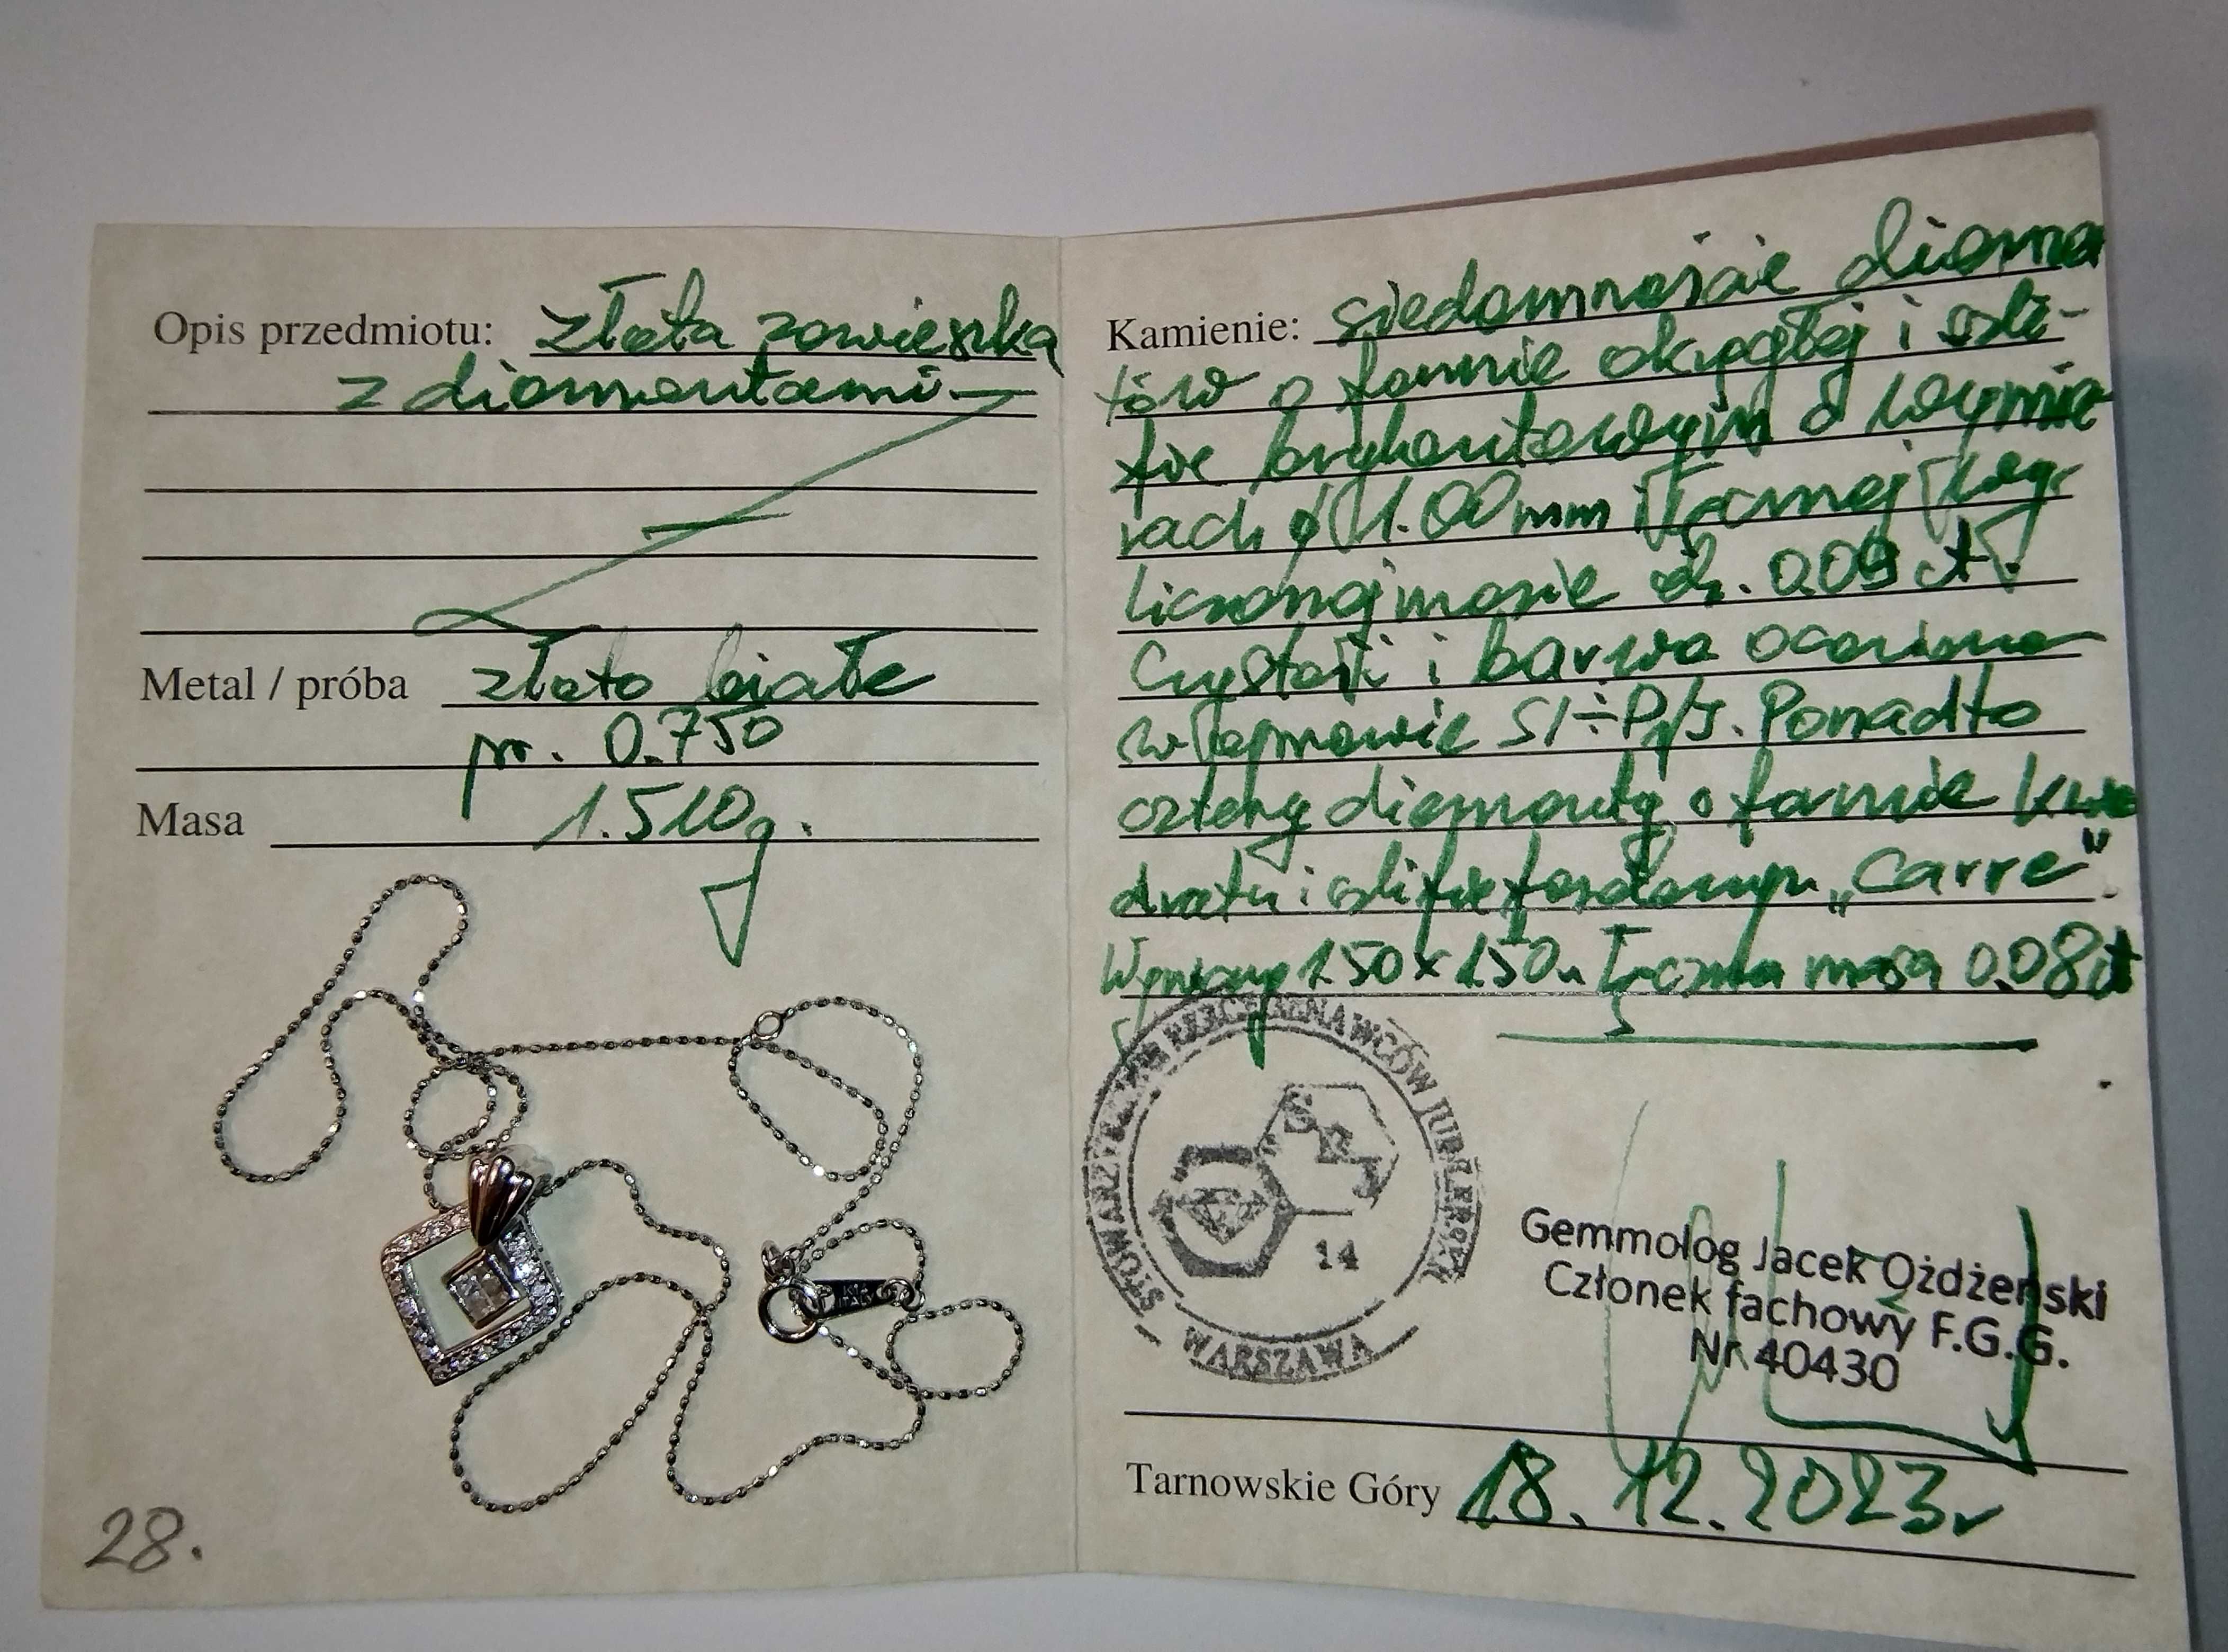 Opis przedmiotu: złota zawieszka
z diamentami
Metal / próba złoto białe
pr. 0.750
Masa 1.510g.
28.
Kamienie: siedemnaście diamen
tów o formie okrągłej i szli-
fie brylantowym o wymia
rach ø 1.00mm i łącznej wy-
liczonej masie ok. 0.09 ct.
Czystość i barwa oceniona
w oprawie SI÷P1/J. Ponadto
cztery diamenty o formie kwa
dratu i szlifie fasetowym „Carre”.
Wymiary 1.50x1.50m Łączna masa 0.08ct
STOWARZYSZENIE RZECZOZNAWCÓW JUBILERSKICH
SRJ
14
— WARSZAWA —
Gemmolog Jacek Ożdżeński
Członek fachowy F.G.G.
Nr 40430
Tarnowskie Góry 18.12.2023r